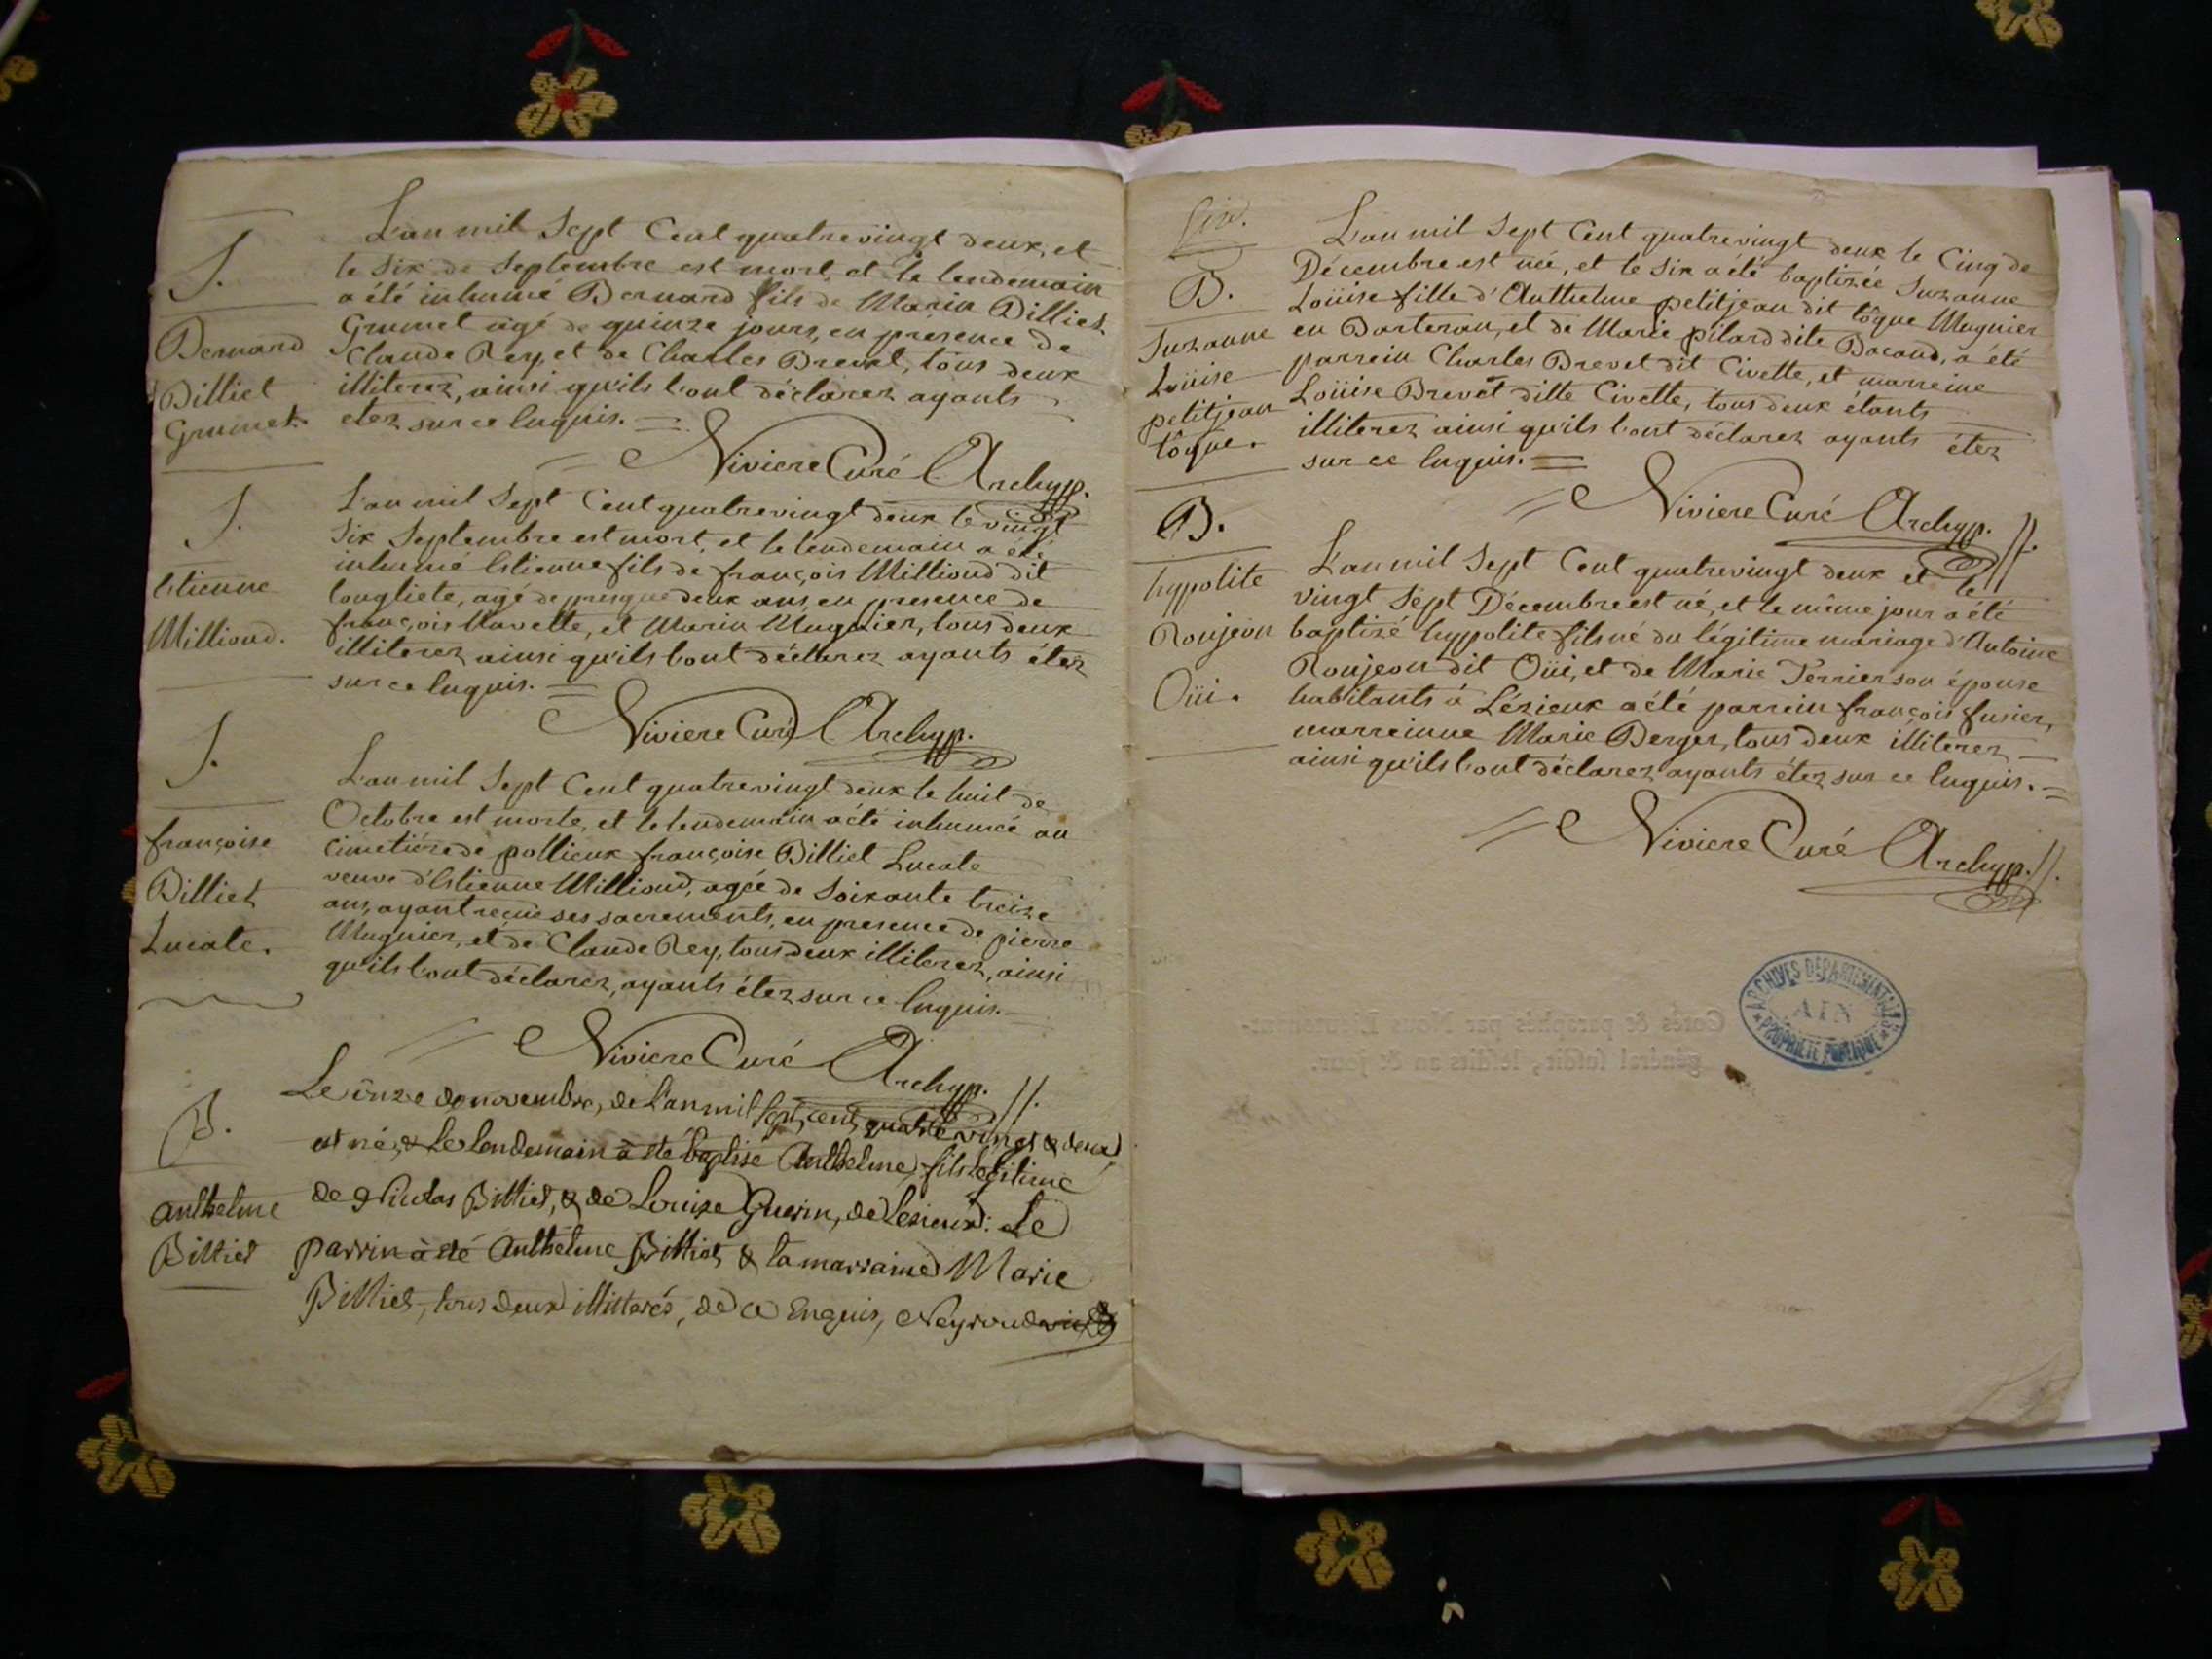 S.
Bernard
Billiet
Grumet.
L'an mil Sept Cent quatrevingt deux, et
le Six de Septembre est mort, et le lendemain
a été inhumé Bernard fils de Marin Billiet
Grumet agé de quinze jours, en présence de
Claude Rey, et de Charles Brevet, tous deux
illiterez, ainsi qu'ils l'ont déclarez ayants
etez sur ce Enquis. =
Niviere Curé Archyp.
S.
Estienne
Milliond.
L'an mil Sept Cent quatrevingt deux le vingt
Six Septembre est mort, et le lendemain a été
inhumé Estienne fils de françois Milliond dit
, agé de presque deux ans, en presence de
françois , et Marin Mugnier, tous deux
illiterez ainsi qu'ils l'ont déclarez ayants étez
sur ce Enquis. =
Niviere Curé Archyp.
S.
françoise
Billiet
Lucate.
L'an mil Sept Cent quatrevingt deux le huit de
Octobre est morte, et le lendemain a été inhumée au
cimetiére de pollieux françoise Billiet Lucate
veuve d'Estienne Milliond, agée de Soixante treize
ans, ayant reçue ses sacrements, en presence de pierre
Mugnier, et de Claude Rey, tous deux illiterez, ainsi
qu'ils l'ont déclarez, ayants étez sur ce Enquis. =
Niviere Curé Archyp. //.
B.
Anthelme
Billiet
Le onze de novembre, de L'an mil Sept cent quatre vingt & deux,
est né, & le lendemain à été baptisé Anthelme, fils légitime
de Nicolas Billiet, & de Louise Guerin, de Lezieux: Le
parrin à été Anthelme Billiet, & la marraine Marie
Billiet, tous deux illisterés, de ce Enquis, Neyroud
B.
Suzanne
Loüise
petitjean
tôque.
L'an mil Sept Cent quatrevingt deux le Cinq de
Décembre est née, et le Six a été baptizée Suzanne
Loüise fille d'Anthelme petitjean dit tôque Mugnier
en Barteran, et de Marie pilard dite Bacand, a été
parrein Charles Brevet dit Civette, et marreine
Loüise Brevet ditte Civette, tous deux étants
illiterez ainsi qu'ils l'ont déclarez ayants étez
sur ce Enquis. =
Niviere Curé Archyp. //.
B.
hyppolite
Roujeon
Oüi.
L'an mil Sept Cent quatrevingt deux et le
vingt Sept Décembre est né, et le même jour a été
baptizé hyppolite fils né du légitime mariage d'Antoine
Roujeon dit Oüi, et de Marie Perrier son épouse
habitants à Lézieux a été parrein françois fusier,
marreinne Marie Berger, tous deux illiterez
ainsi qu'ils l'ont déclarez ayants étez sur ce Enquis. =
Niviere Curé Archyp. //.
ARCHIVES DÉPARTEMENTALES
AIN
PROPRIÉTÉ PUBLIQUE
Cotés & paraphés par Nous Lieutenant-
général susdit, lesdits an & jour.